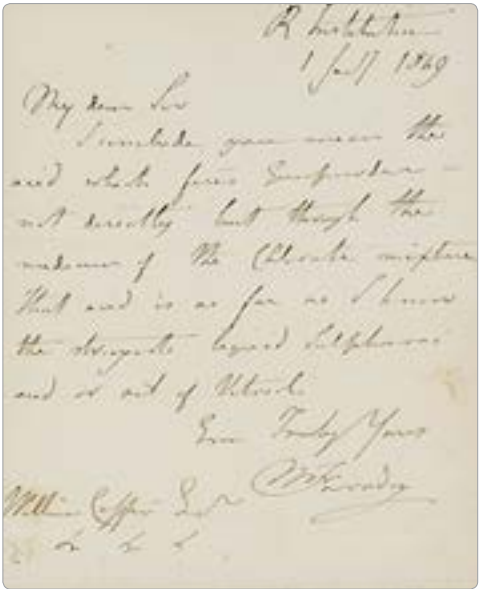 R Institution
1 Jany 1849
My dear Sir
I conclude you mean the
acid which fires Gunpowder -
not directly but through the
medium of the Chlorate mixture
that acid is as far as I know
the strongest liquid Sulphuric
acid or oil of Vitriol.
Ever Truly Yours
M Faraday
William Esqr
&c &c &c